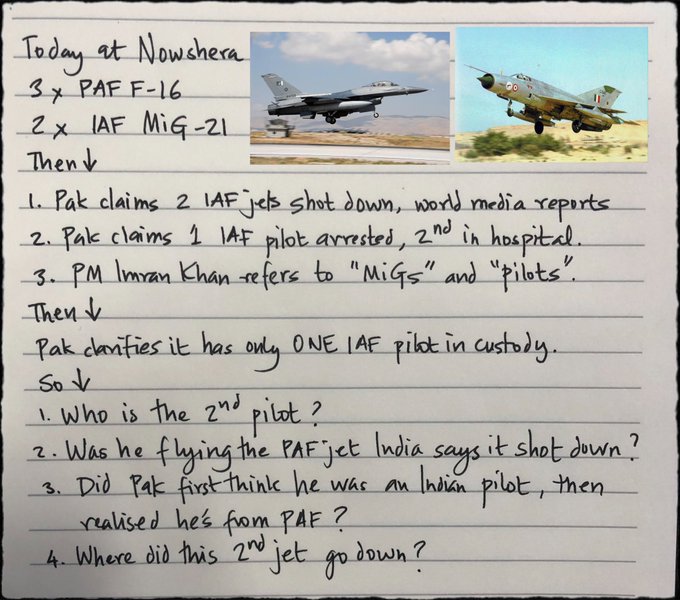 Today at Nowshera
3 x PAF F-16
2 x IAF MiG-21
Then ↓
1. Pak claims 2 IAF jets shot down, world media reports
2. Pak claims 1 IAF pilot arrested, 2nd in hospital.
3. PM Imran Khan refers to "MiGs" and "pilots".
Then ↓
Pak clarifies it has only ONE IAF pilot in custody.
So ↓
1. Who is the 2nd pilot?
2. Was he flying the PAF jet India says it shot down?
3. Did Pak first think he was an Indian pilot, then
realised he's from PAF?
4. Where did this 2nd jet go down?